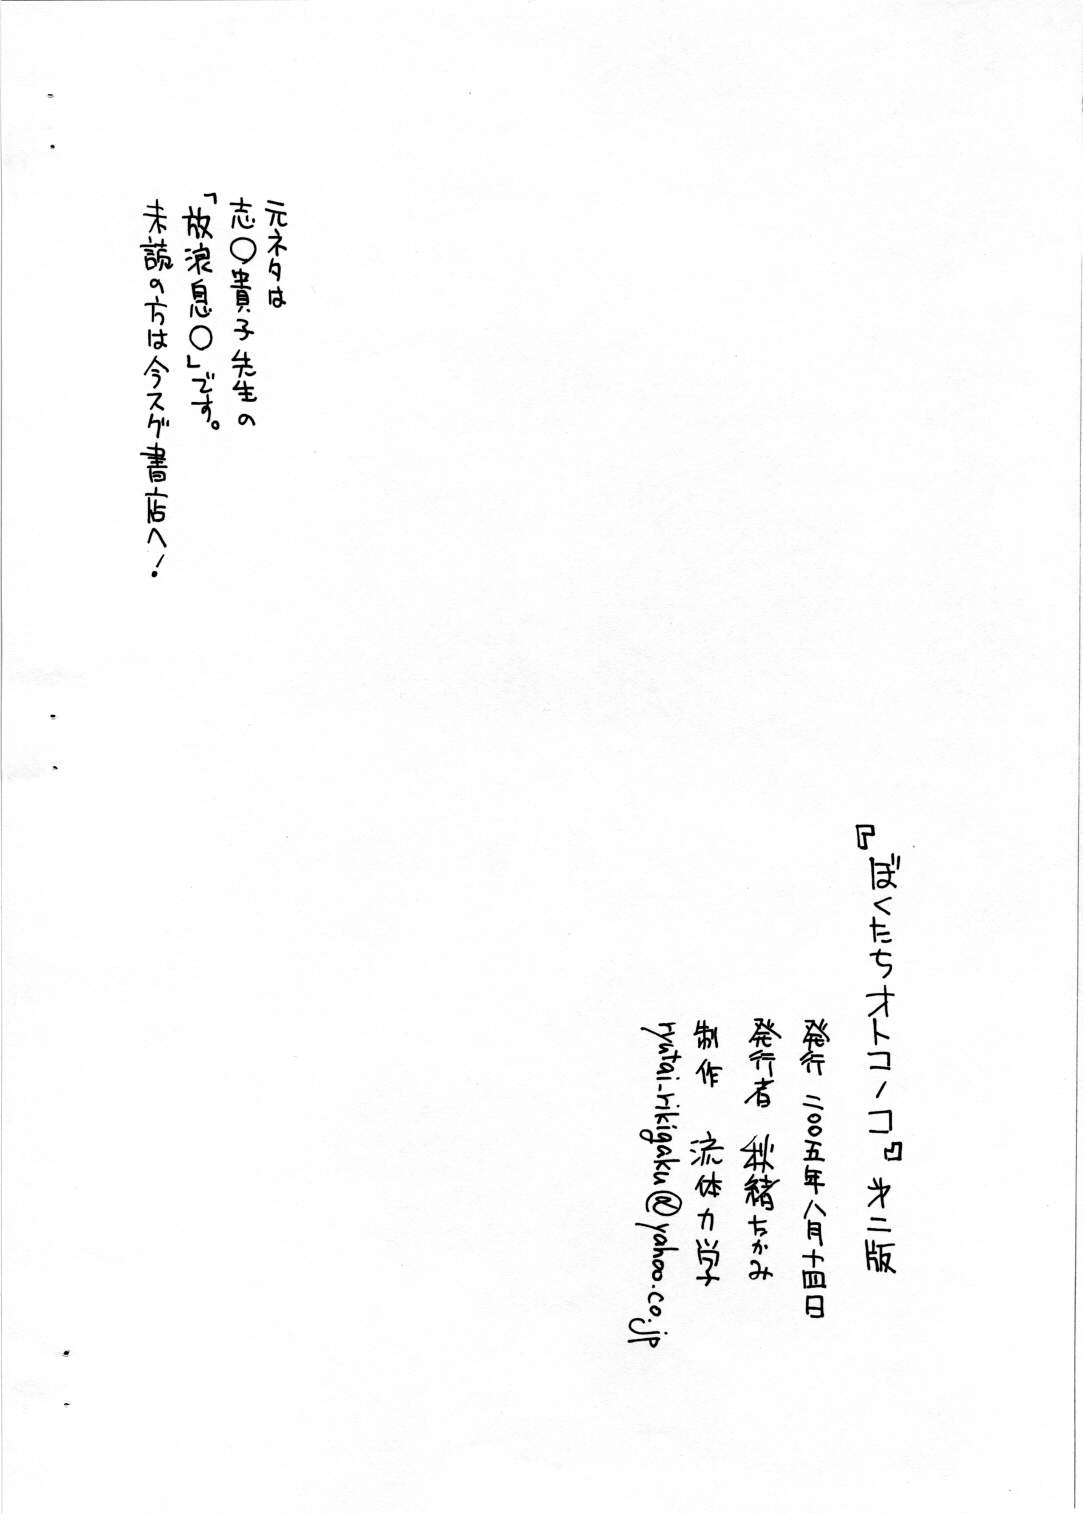 元ネタは
志〇貴子先生の
「放浪息〇」です。
未読の方は今スグ書店へ!
『ぼくたちオトコノコ』㐧二版
発行 二〇〇五年八月十四日
発行者 秋緒ちかみ
制作 流体力学
ryutai_rikigaku@yahoo.co.jp